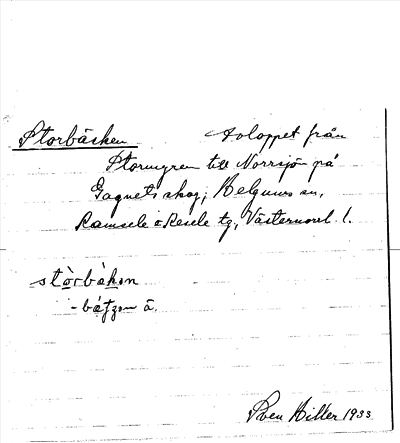 Storbäcken Avloppet från
Stormyren till Norrsjön på
Gagnets skog, Helgums sn,
Ramsele o Resele tg, Västernorrl. l.
stòrbàkən
-bátzən ä.
Sven Hiller 1933